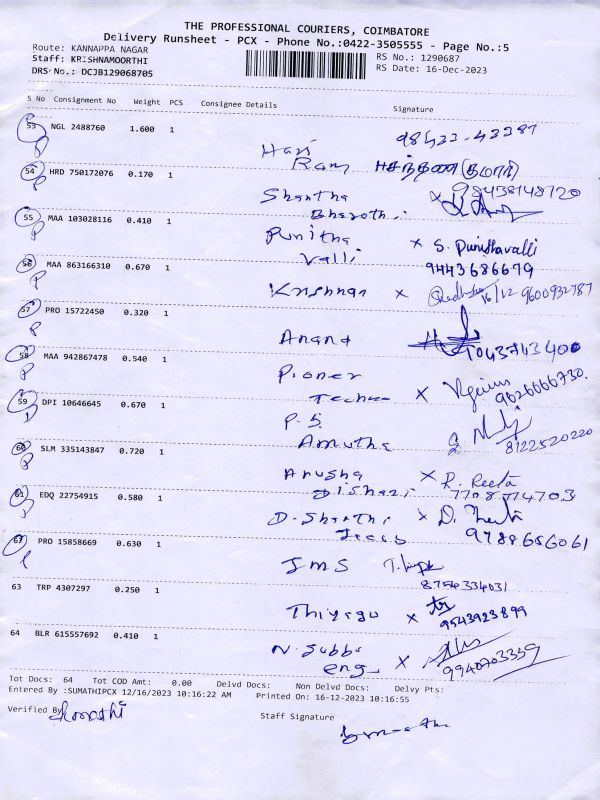 THE PROFESSIONAL COURIERS, COIMBATORE
Delivery Runsheet - PCX - Phone No.:0422-3505555 - Page No.:5
Route: KANNAPPA NAGAR
RS No.: 1290687
Staff: KRISHNAMOORTHI
RS Date: 16-Dec-2023
DRS No.: DCJB129068705
S No Consignment No Weight PCS Consignee Details Signature
53 NGL 2488760 1.600 1
Hari
Ram
54 HRD 750172076 0.170 1
98438148720
Shantha
Bharathi
55 MAA 103028116 0.410 1
Punitha x S. Punithavalli
Valli 9443686679
56 MAA 863166310 0.670 1
Krishnan x 16/12 9600932787
57 PRO 15722450 0.320 1
Anand
58 MAA 942867478 0.540 1
Pioner
x
59 DPI 10646645 0.670 1
P.S.
Amutha
8122520220
60 SLM 335143847 0.720 1
Anusha x R. Reeta
61 EDQ 22754915 0.580 1
D. Shanthi x D.
9788656061
62 PRO 15858669 0.630 1
JMS
8754334031
63 TRP 4307297 0.250 1
Thiyagu x
9543923899
64 BLR 615557692 0.410 1
N. Subbu x
eng
9940703339
Tot Docs: 64 Tot COD Amt: 0.00 Delvd Docs: Non Delvd Docs: Delvy Pts:
Entered By :SUMATHIPCX 12/16/2023 10:16:22 AM Printed On: 16-12-2023 10:16:55
Verified By
Staff Signature